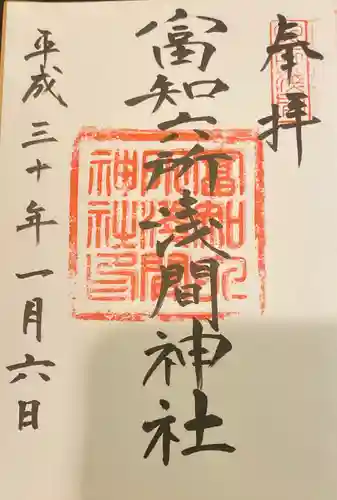 奉拝
富知六所浅間神社
平成三十年一月六日
富知六
所浅間
神社印